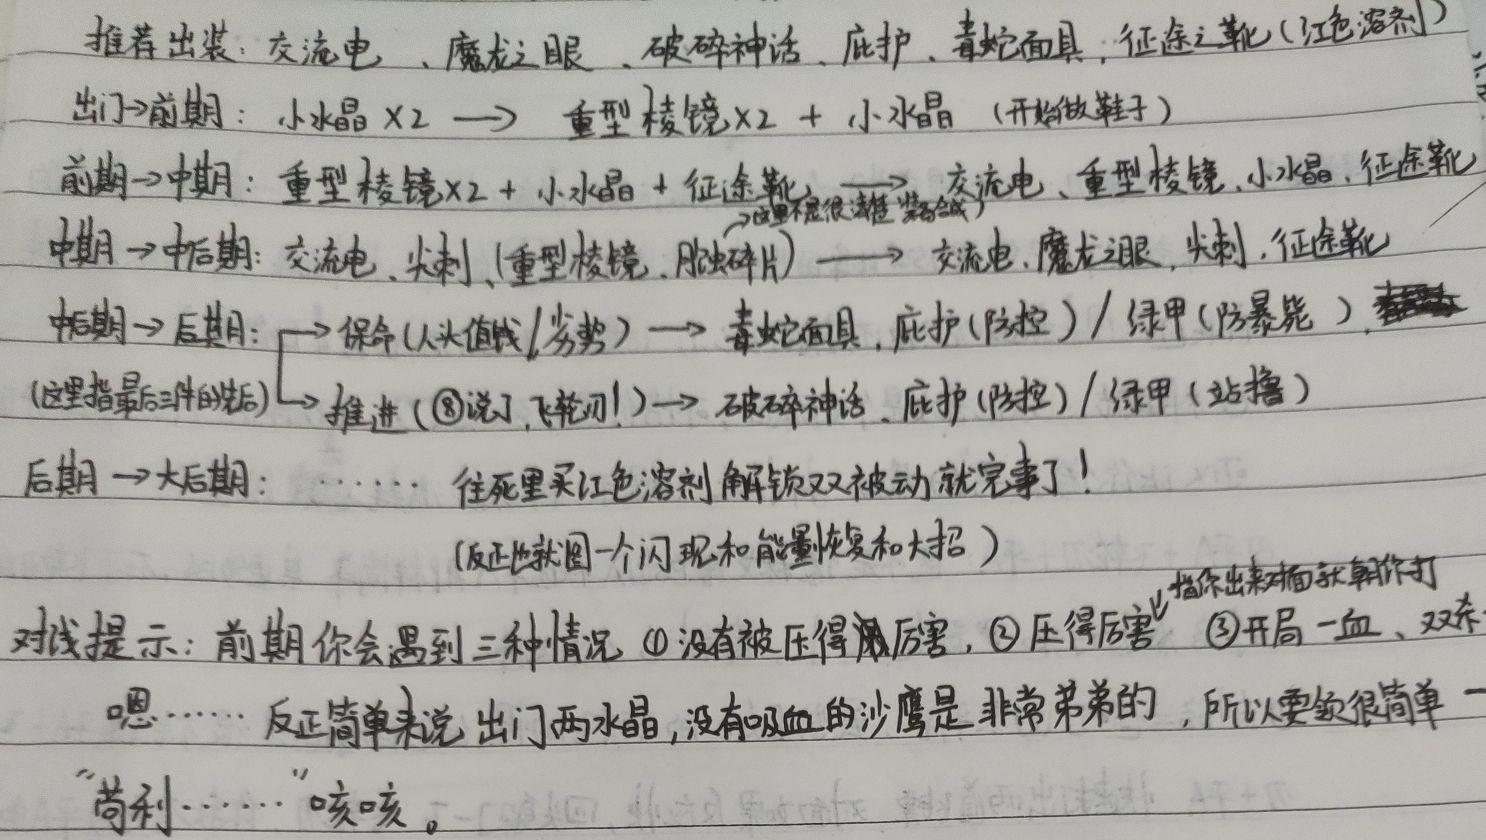 推荐出装：交流电、魔龙之眼、破碎神话、庇护、毒蛇面具、征途之靴（红色溶剂）
出门→前期：小水晶×2 → 重型棱镜×2 + 小水晶（开始做鞋子）
前期→中期：重型棱镜×2 + 小水晶 + 征途靴 → 交流电、重型棱镜、小水晶、征途靴
→这里不是很清楚 装备合成）
中期→中后期：交流电、尖刺、（重型棱镜、腐蚀碎片）→ 交流电、魔龙之眼、尖刺、征途靴
中后期→后期：→保命（人头值钱/劣势）→ 毒蛇面具、庇护（防控）/ 绿甲（防暴毙）、
（这里指最后三件的先后）→推进（⑧说了，飞轮刃！）→ 破碎神话、庇护（防控）/ 绿甲（站撸）
后期→大后期：…… 往死里买红色溶剂 解锁双被动就完事了！
（反正也就图一个闪现和能量恢复和大招）
指你出来对面就朝你打
对线提示：前期你会遇到三种情况 ①没有被压得厉害，②压得厉害 ③开局一血、双杀
嗯…… 反正简单来说 出门两水晶，没有吸血的沙鹰是非常弟弟的，所以要领很简单一
“苟利……”咳咳。